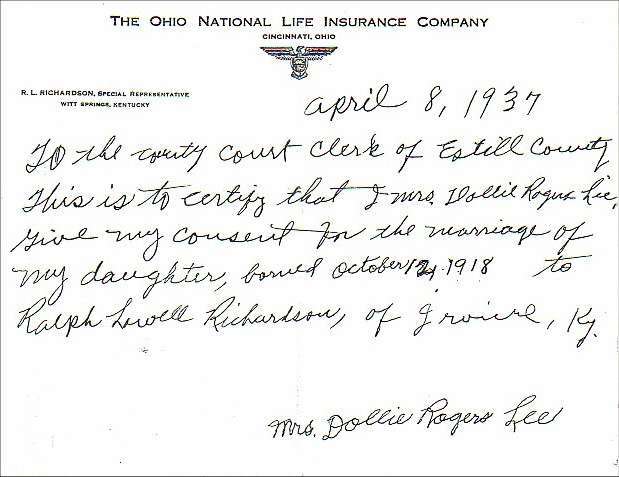 THE OHIO NATIONAL LIFE INSURANCE COMPANY
CINCINNATI, OHIO
R. L. RICHARDSON, SPECIAL REPRESENTATIVE
WITT SPRINGS, KENTUCKY
April 8, 1937
To the county court clerk of Estill County
This is to certify that I Mrs. Dollie Rogers Lee,
give my consent for the marriage of
my daughter, borned October 1918 to
Ralph Lowell Richardson, of Irvine, Ky.
Mrs. Dollie Rogers Lee